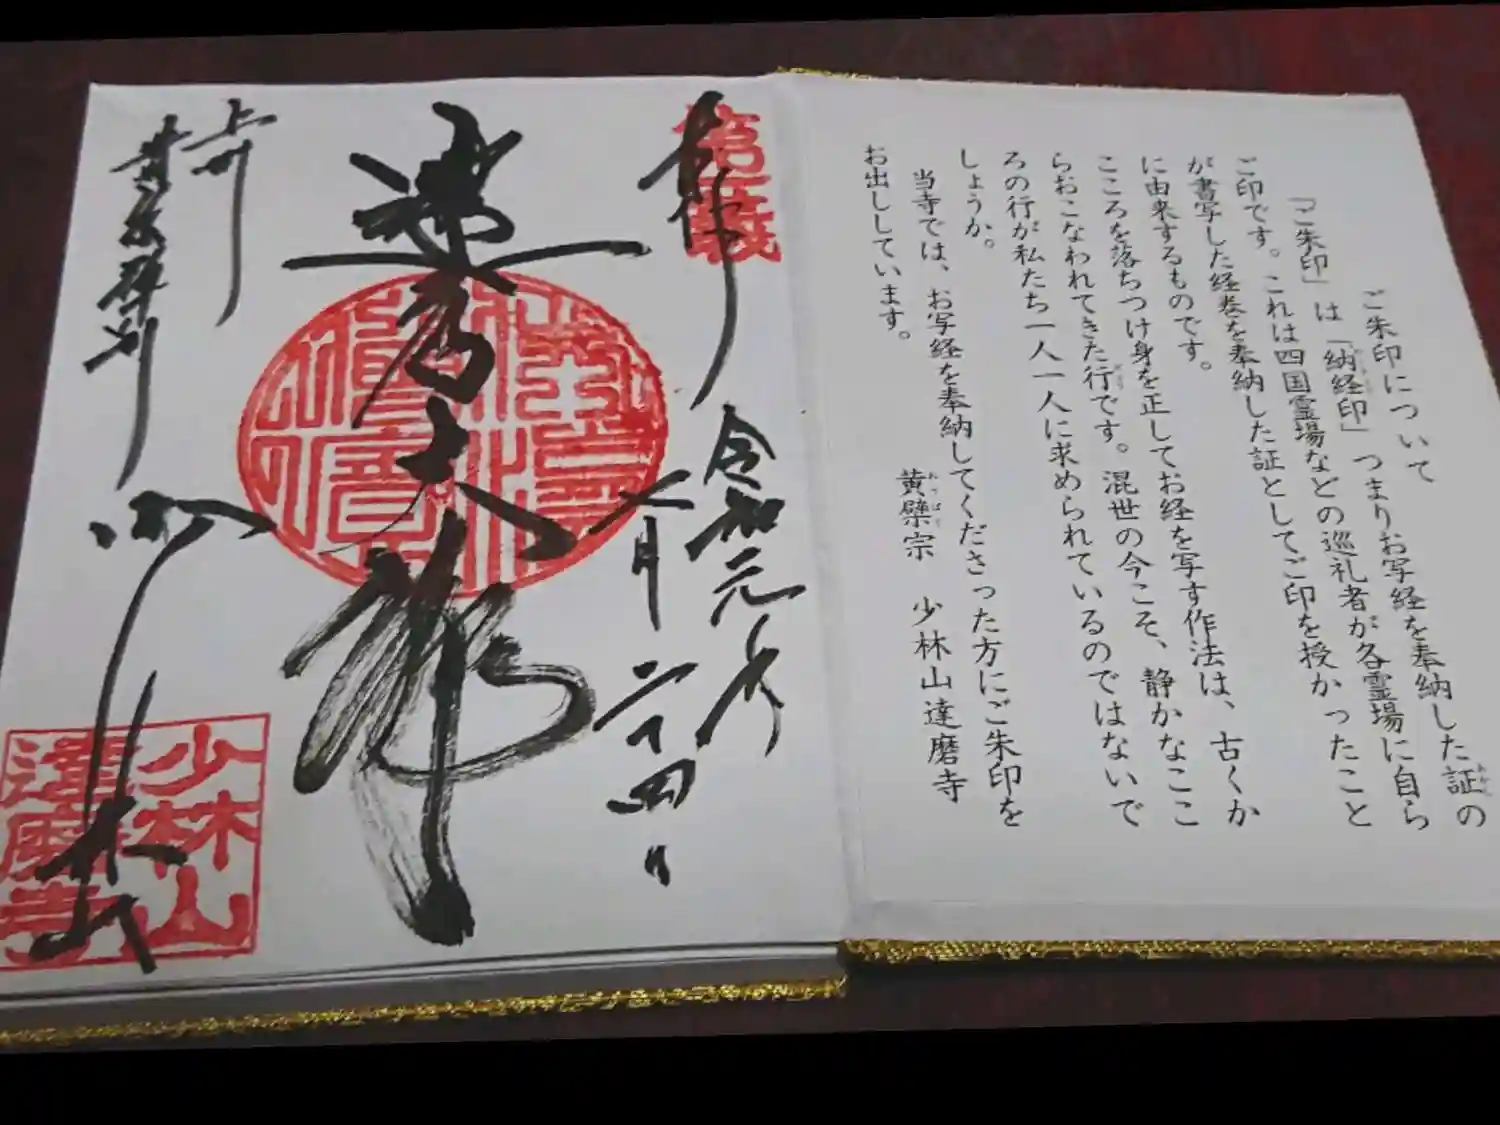 ご朱印について
「ご朱印」は「納経印」つまりお写経を奉納した証の
ご印です。これは四国霊場などの巡礼者が各霊場に自ら
が書写した経巻を奉納した証としてご印を授かったこと
に由来するものです。
こころを落ちつけ身を正してお経を写す作法は、古くか
らおこなわれてきた行です。混世の今こそ、静かなここ
ろの行が私たち一人一人に求められているのではないで
しょうか。
当寺では、お写経を奉納してくださった方にご朱印を
お出ししています。
黄檗宗 少林山達磨寺
奉拝
第一義
令和元年
七月二十四日
達磨大師
上州
少林山
少林山
達磨寺